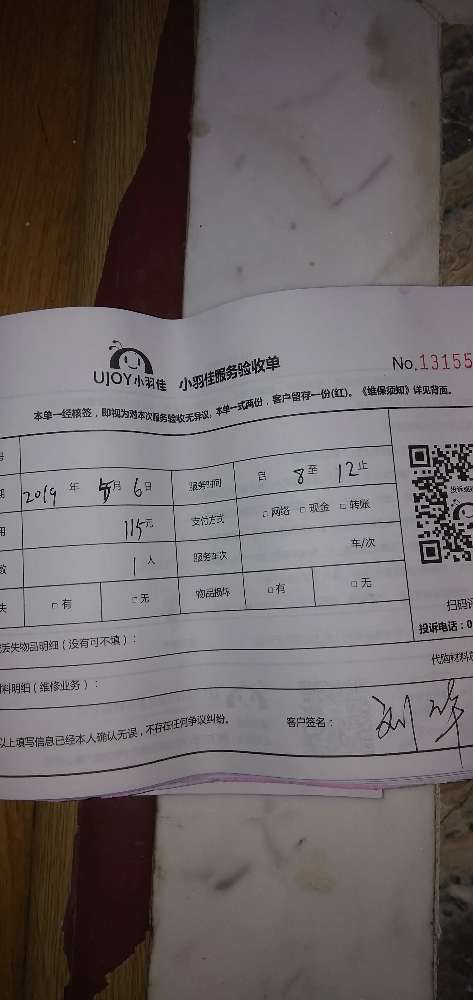 UJOY小羽佳 小羽佳服务验收单 No.13155
本单一经核签，即视为对本次服务验收无异议，本单一式两份，客户留存一份(红)。《维保须知》详见背面。
2019 年 月 6 日 服务时间 自 8 至 12 止
115 元 支付方式 □ 网络 □ 现金 □ 转账
1 人 服务车次 车/次
失 □ 有 □ 无 物品损坏 □ 有 □ 无
扫码
投诉电话：0
丢失物品明细（没有可不填）：
代购材料
料明细（维修业务）：
以上填写信息已经本人确认无误，不存在任何争议纠纷。 客户签名： 刘